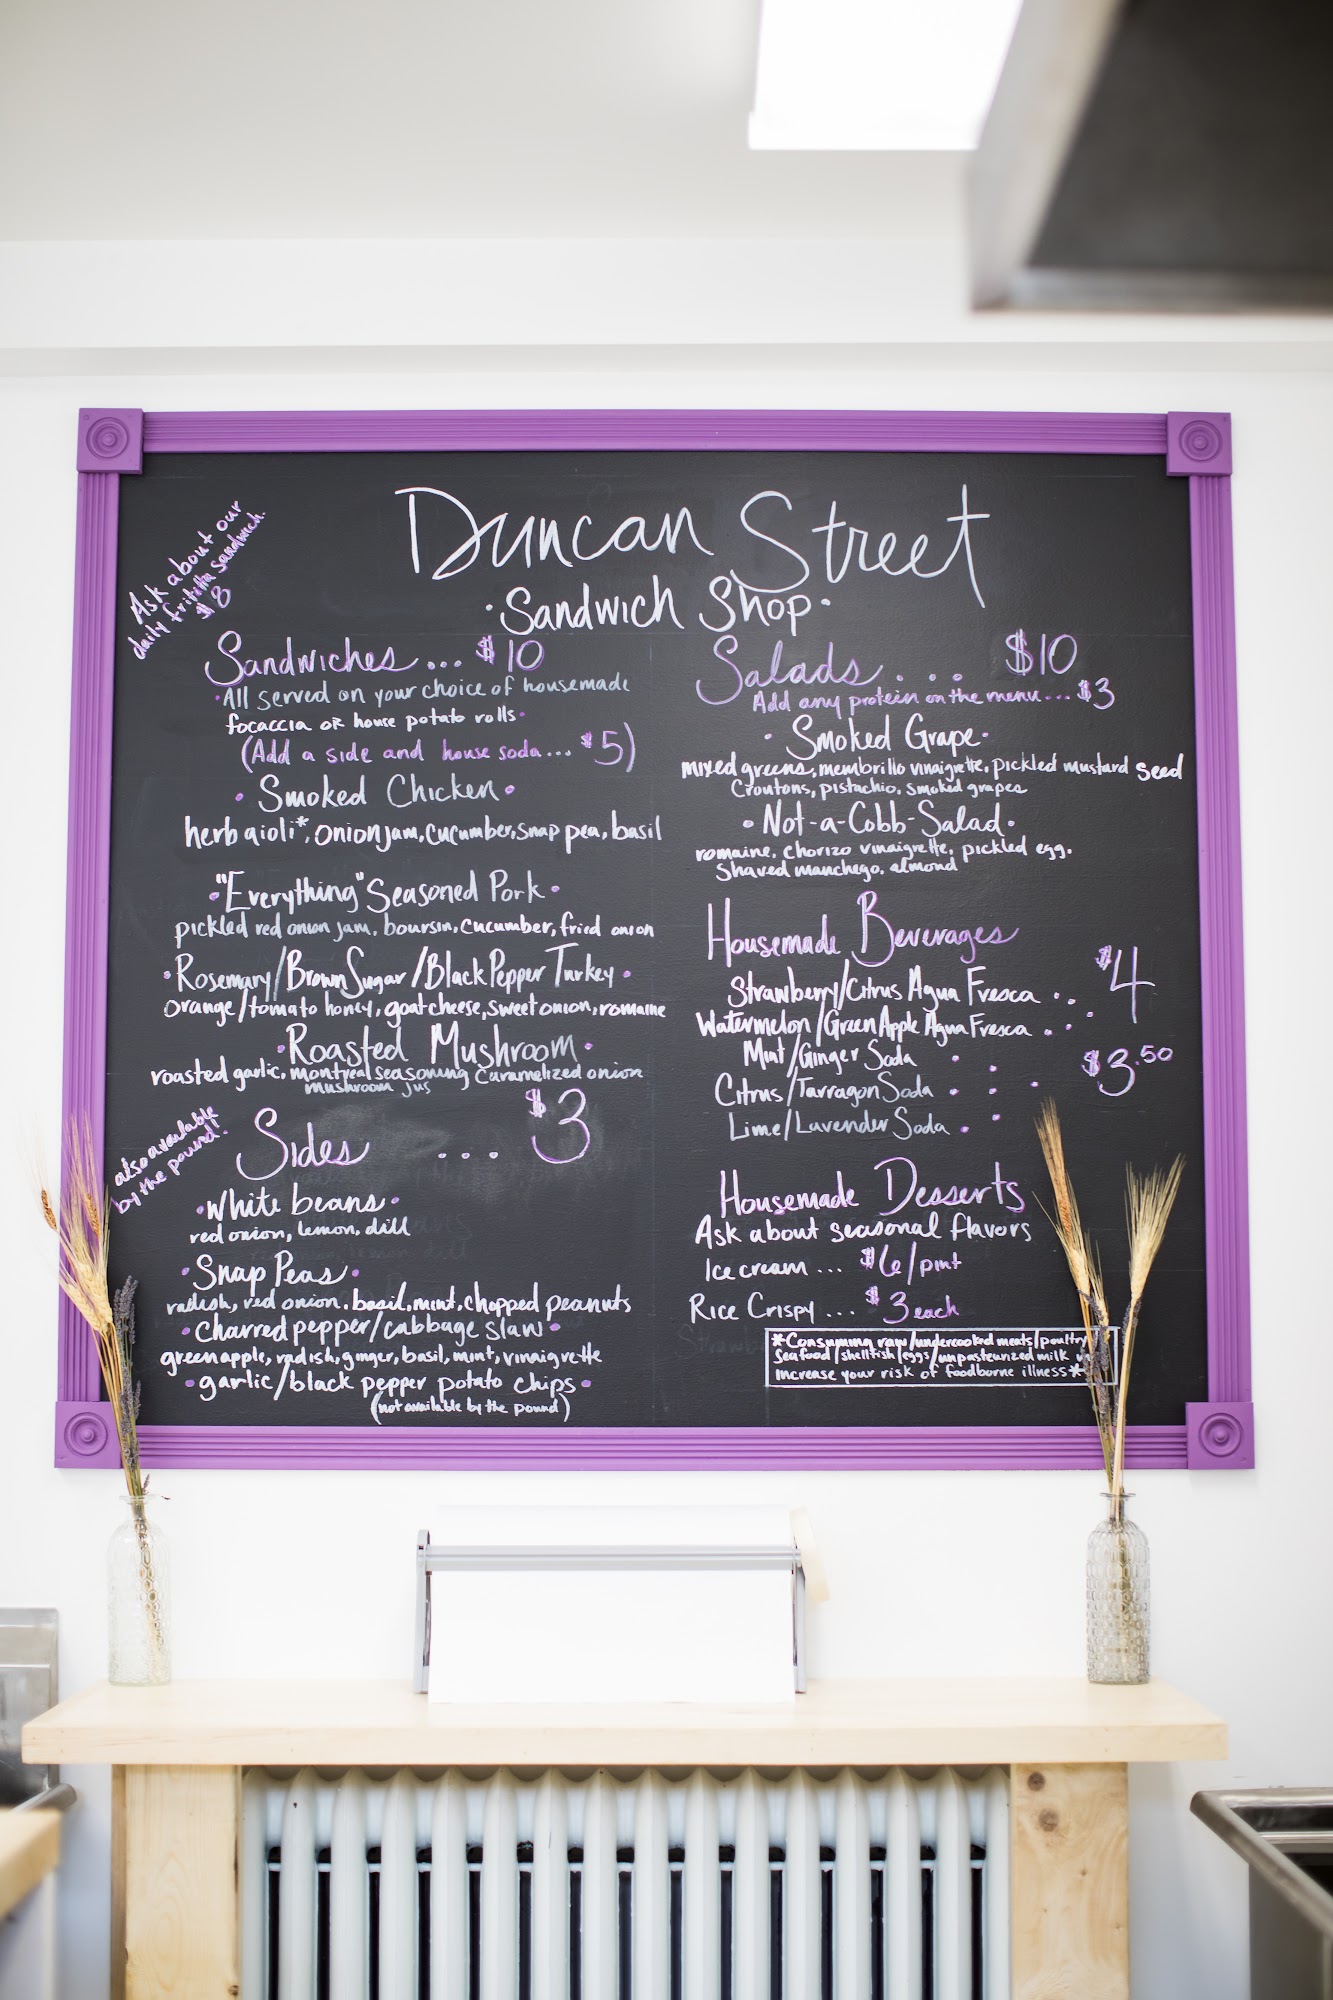 Ask about our
daily frittata sandwich.
$8
Duncan Street
·Sandwich Shop·
Sandwiches... $10
·All served on your choice of housemade
focaccia or house potato rolls·
(Add a side and house soda... $5)
·Smoked Chicken·
herb aioli*, onion jam, cucumber, snap pea, basil
·"Everything" Seasoned Pork·
pickled red onion jam, boursin, cucumber, fried onion
·Rosemary/Brown Sugar/Black Pepper Turkey·
orange/tomato honey, goat cheese, sweet onion, romaine
·Roasted Mushroom·
roasted garlic, montreal seasoning caramelized onion
mushroom jus
also available
by the pound!
Sides ... $3
·White beans·
red onion, lemon, dill
·Snap Peas·
radish, red onion, basil, mint, chopped peanuts
·Charred pepper/cabbage slaw·
green apple, radish, ginger, basil, mint, vinaigrette
·garlic/black pepper potato chips·
(not available by the pound)
Salads... $10
Add any protein on the menu... $3
·Smoked Grape·
mixed greens, membrillo vinaigrette, pickled mustard seed
Croutons, pistachio, smoked grapes
·Not-a-Cobb-Salad·
romaine, chorizo vinaigrette, pickled egg,
Shaved manchego, almond
Housemade Beverages
Strawberry/Citrus Agua Fresca .. $4
Watermelon/Green Apple Agua Fresca ...
Mint/Ginger Soda . . $3.50
Citrus/Tarragon Soda . . .
Lime/Lavender Soda . .
Housemade Desserts
Ask about seasonal flavors
Ice cream ... $6/pint
Rice Crispy ... $3 each
*Consuming raw/undercooked meats/poultry
Seafood/shellfish/eggs/unpasteurized milk
increase your risk of foodborne illness*